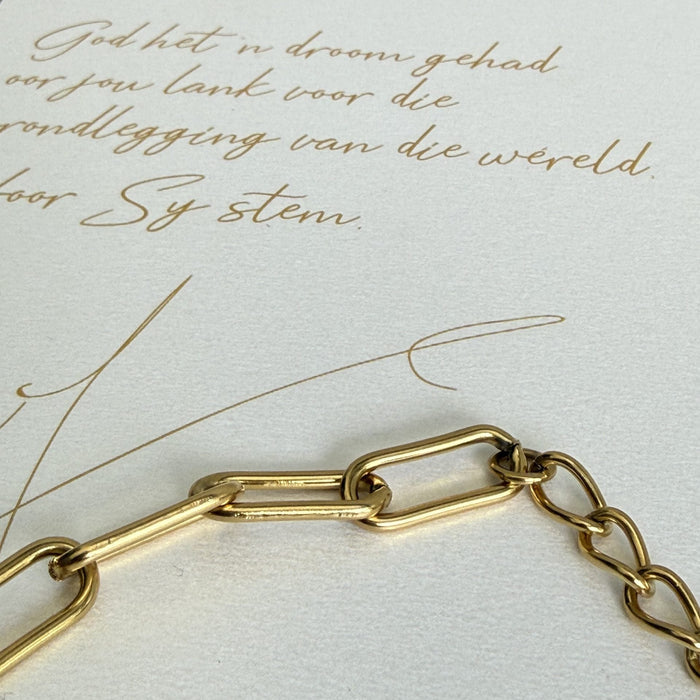 God het 'n droom gehad
oor jou lank voor die
rondlegging van die wêreld.
oor Sy stem.